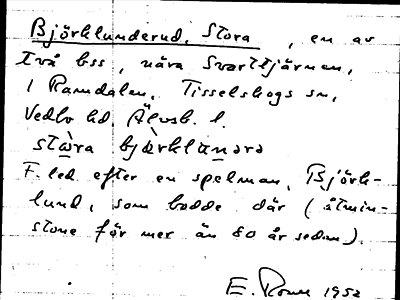 Björklunderud, Stora, en av
två bss, nära Svarttjärnen,
i Ramdalen, Tisselskogs sn,
Vedbo hd, Älvsb. l.
stωra bjàrklωnərə
F. led efter en spelman, Björk-
lund, som bodde där (åtmin-
stone för mer än 80 år sedan).
E. 1952